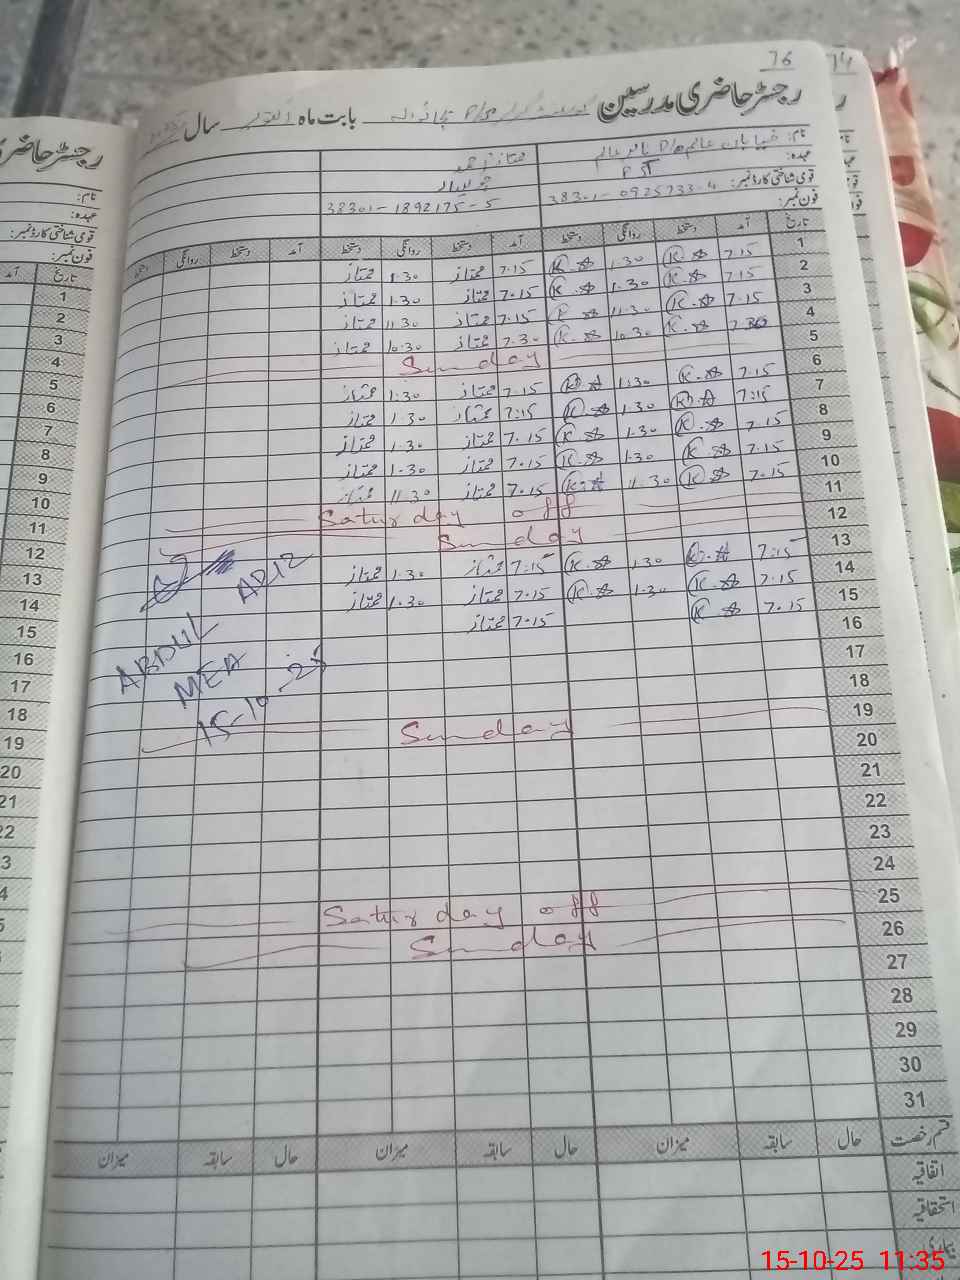 76
رجسٹر حاضری مدرسین بابت ماہ اکتوبر سال
نام: خیابان عالم D/o ممتاز احمد
عہدہ: PST چوکیدار
قومی شناختی کارڈ نمبر: 38301-0925733-4 38301-1892175-5
فون نمبر:
تاریخ آمد دستخط روانگی دستخط آمد دستخط روانگی دستخط آمد دستخط روانگی دستخط
1 7.15 K 1.30 K 7.15 ممتاز 1.30 ممتاز
2 7.15 K 1.30 K 7.15 ممتاز 1.30 ممتاز
3 7.15 K 11.30 K 7.15 ممتاز 11.30 ممتاز
4 7.30 K 10.30 K 7.30 ممتاز 10.30 ممتاز
5 Sunday
6 7.15 K 1.30 K 7.15 ممتاز 1.30 ممتاز
7 7:15 K 1.30 K 7:15 ممتاز 1.30 ممتاز
8 7.15 K 1.30 K 7.15 ممتاز 1.30 ممتاز
9 7.15 K 1.30 K 7.15 ممتاز 1.30 ممتاز
10 7.15 K 11.30 K 7.15 ممتاز 11.30 ممتاز
11 Saturday off
12 Sunday
13 7:15 K 1.30 K 7:15 ممتاز 1.30 ممتاز
14 7.15 K 1.30 K 7.15 ممتاز 1.30 ممتاز
15 7.15 K 7.15 ممتاز
16
17
18
19 Sunday
20
21
22
23
24
25 Saturday off
26 Sunday
27
28
29
30
31
ABDUL AZIZ
MEA
15-10-25
قسم رخصت حال سابقہ میزان حال سابقہ میزان حال سابقہ میزان
اتفاقیہ
استحقاقیہ
بیماری
رجسٹر حاضری
نام:
عہدہ:
قومی شناختی کارڈ نمبر:
فون نمبر:
تاریخ آمد
1
2
3
4
5
6
7
8
9
10
11
12
13
14
15
16
17
18
19
20
21
22
15-10-25 11:35